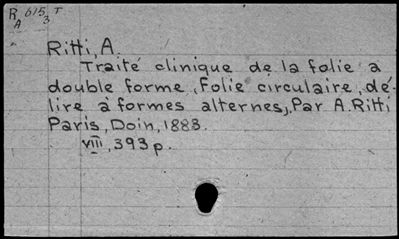 R 615 T
A 3
Ritti, A.
Traité clinique de la folie a
double forme, Folie circulaire, dé-
lire à formes alternes, Par A. Ritti
Paris, Doin, 1883.
VIII, 393 p.